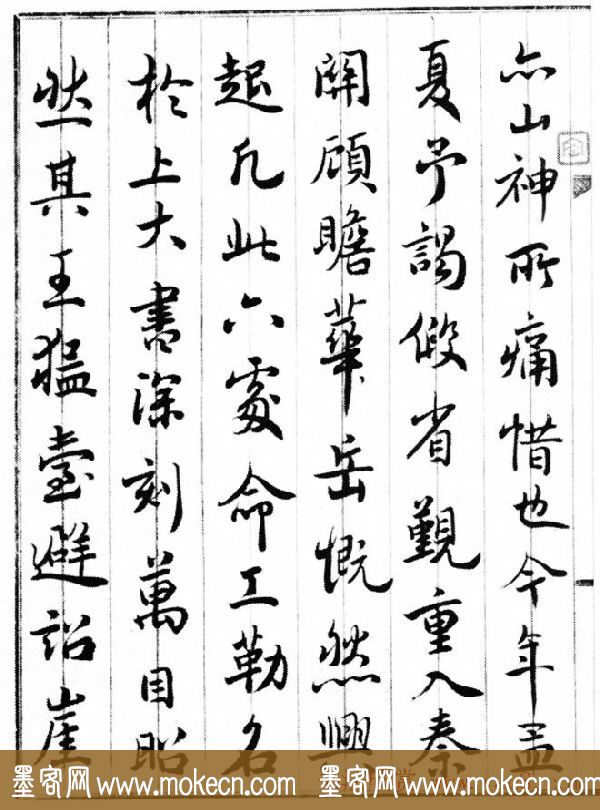 亦山神所痛惜也今年孟
夏予謁假省覲重入秦
關顧瞻華岳慨然興
起凡此六處命工勒名
於上大書深刻萬目昭
然其王猛臺避詔崖
墨客网 www.mokecn.com 墨客网 www.mokecn.com